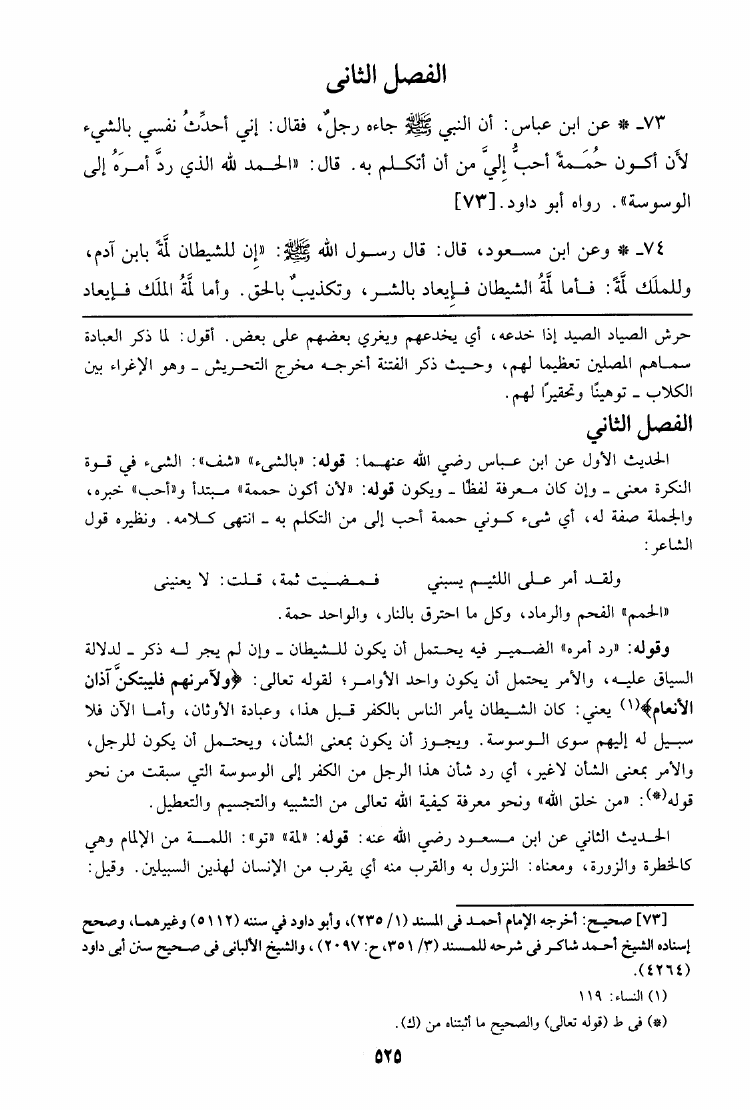 الفصل الثانى
٧٣ـ * عن ابن عباس: أن النبي ﷺ جاءه رجلٌ، فقال: إني أحدِّثُ نفسي بالشيء
لأَن أكـون حُمَـمةً أحبُّ إِليَّ من أن أتكـلم به. قال: «الحـمد لله الذي ردَّ أمـرَهُ إلى
الوسوسة». رواه أبو داود.[٧٣]
٧٤ـ * وعن ابن مسـعود، قال: قال رسـول الله ﷺ: «إِن للشيطان لمَّةً بابن آدم،
وللملَك لمَّةً: فـأما لمَّةُ الشيطان فـإيعاد بالشـر، وتكذيبٌ بالحق. وأما لمَّةُ الملَك فـإيعاد
حرش الصياد الصيد إذا خدعه، أي يخدعهم ويغري بعضهم على بعض. أقول: لما ذكر العبادة
سمـاهم المصلين تعظيما لهم، وحـيث ذكر الفتنة أخرجـه مخرج التحـريش ـ وهو الإغراء بين
الكلاب ـ توهينًا وتحقيرًا لهم.
الفصل الثاني
الحديث الأول عن ابن عـباس رضي الله عنهـما: قوله: «بالشىء» «شف»: الشىء في قـوة
النكرة معنى ـ وإن كان مـعرفة لفظًا ـ ويكون قوله: «لأن أكون حممة» مـبتدأ و«أحب» خبره،
والجملة صفة له، أي شىء كـوني حممة أحب إلى من التكلم به ـ انتهى كـلامه. ونظيره قول
الشاعر:
ولقـد أمر عـلى اللئيـم يسبني فـمـضـيت ثمة، قـلت: لا يعنينى
«الحمم» الفحم والرماد، وكل ما احترق بالنار، والواحد حمة.
وقوله: «رد أمره» الضمـير فيه يحـتمل أن يكون للـشيطان ـ وإن لم يجر لـه ذكر ـ لدلالة
السياق عليـه، والأمر يحتمل أن يكون واحد الأوامـر؛ لقوله تعالى: ﴿ولآمرنهم فليبتكنَّ آذان
الأنعام﴾(١) يعني: كان الشـيطان يأمر الناس بالكفر قـبل هذا، وعبادة الأوثان، وأمـا الآن فلا
سبـيل له إليهم سوى الـوسوسة. ويجـوز أن يكون بمعنى الشأن، ويحتـمل أن يكون للرجل،
والأمر بمعنى الشأن لاغير، أي رد شأن هذا الرجل من الكفر إلى الوسوسة التي سبقت من نحو
قوله(*): «من خلق الله» ونحو معرفة كيفية الله تعالى من التشبيه والتجسيم والتعطيل.
الحـديث الثاني عن ابن مـسعود رضي الله عنه: قوله: «لمة» «تو»: اللمـة من الإلمام وهي
كالخطرة والزورة، ومعناه: النزول به والقرب منه أي يقرب من الإنسان لهذين السبيلين. وقيل:
[٧٣] صحيـح: أخرجه الإمام أحمـد فى المسند (١/ ٢٣٥)، وأبو داود في سننه (٥١١٢) وغيرهمـا، وصحح
إسناده الشيخ أحـمد شاكـر فى شرحه للمـسند (٣/ ٣٥١، ح: ٢٠٩٧)، والشيخ الألبانى فى صـحيح سنن أبى داود
(٤٢٦٤).
(١) النساء: ١١٩
(*) فى ط (قوله تعالى) والصحيح ما أثبتناه من (ك).
٥٢٥